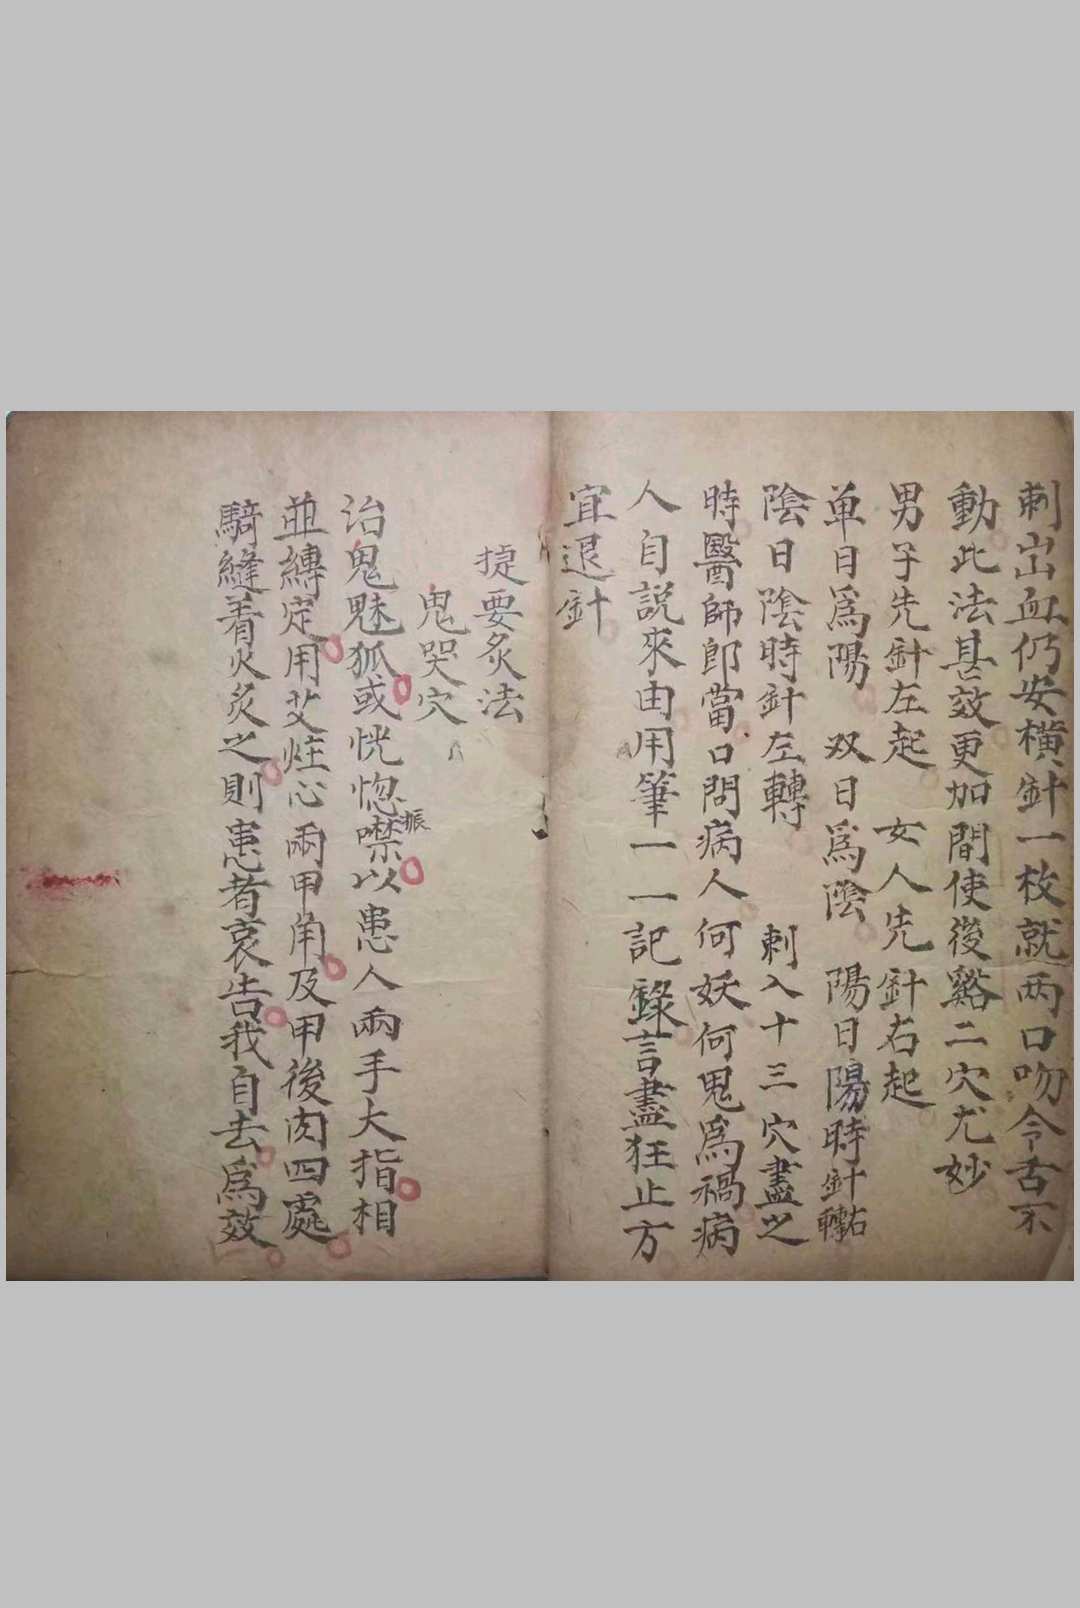 刺出血仍安橫針一枚就两口吻令舌不
動此法甚效更加間使後谿二穴尤妙
男子先針左起 女人先針右起
单日為陽 双日為陰 陽日陽時針右轉
陰日陰時針左轉 刺入十三穴盡之
時醫師即當口問病人何妖何鬼為禍病
人自說來由用筆一一記錄言盡狂止方
宜退針
捷要灸法
鬼哭穴
治鬼魅狐或恍惚噤振以患人兩手大指相
並縛定用艾炷心兩甲角及甲後肉四處
騎縫着火灸之則患者哀告我自去為效